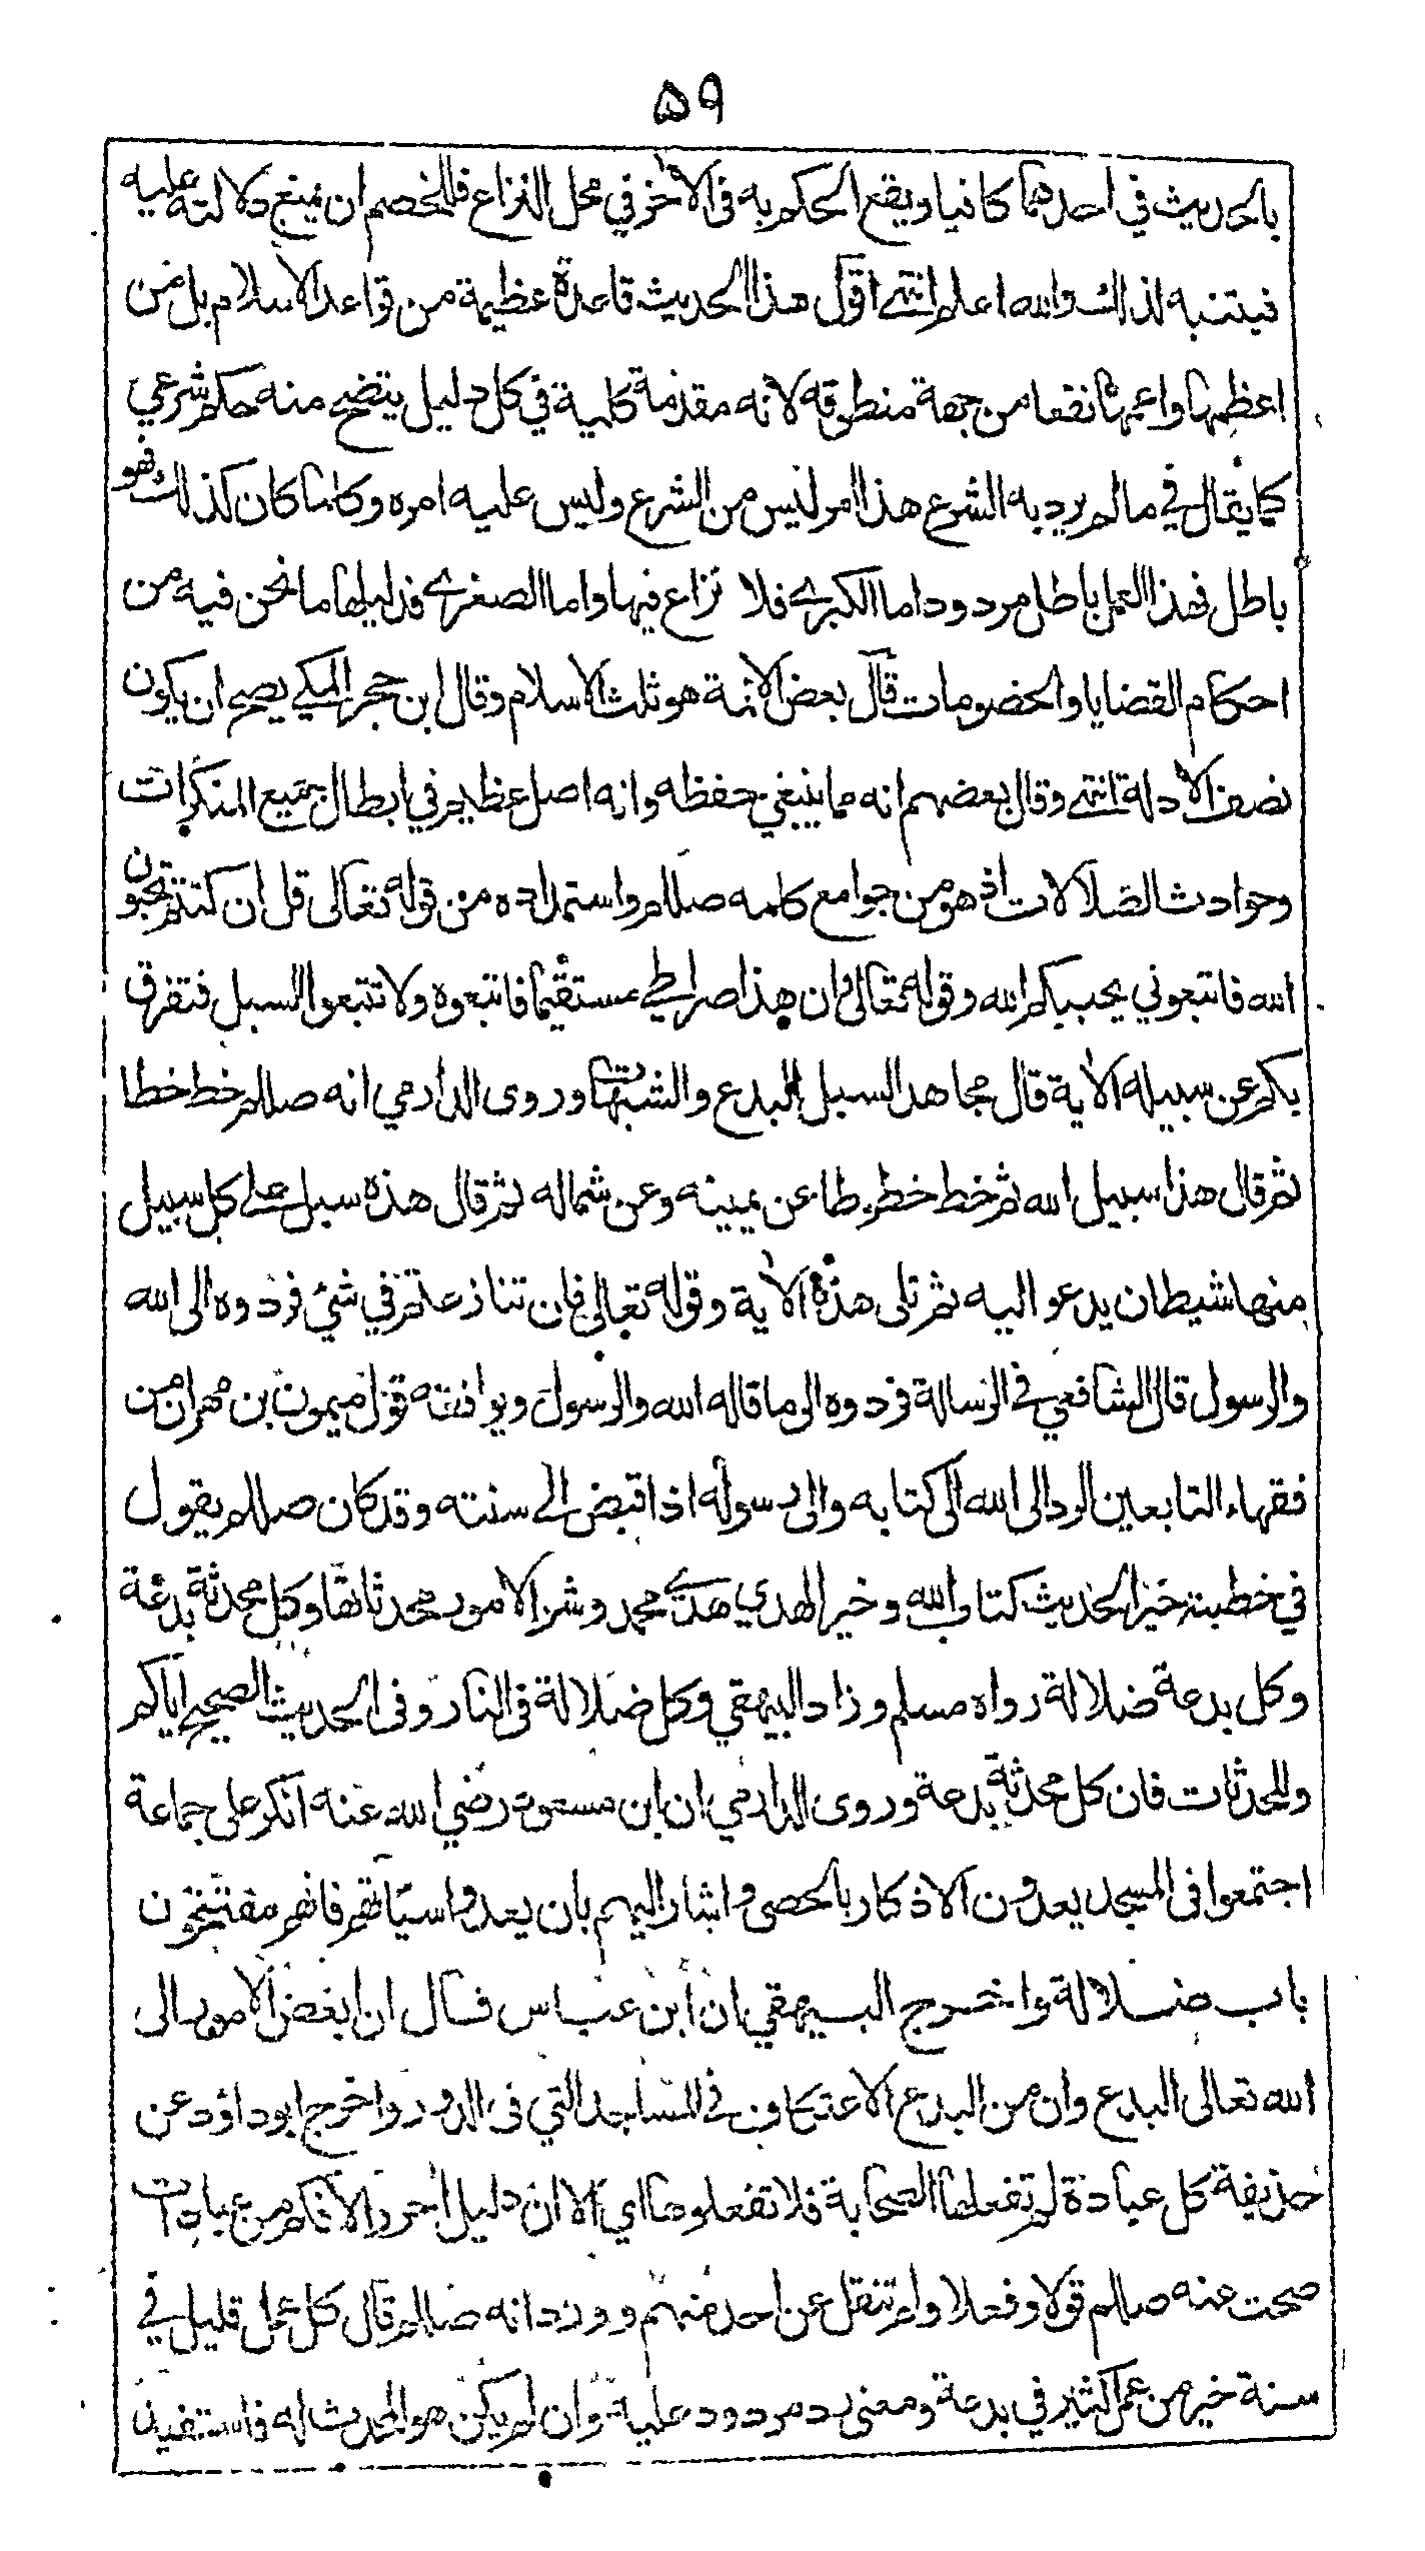 ۵۹
بالحديث في احدهما كافيا ويقع الحكم به في الاخر في محل النزاع فللخصم ان يمنع دلالته عليه
فيتنبه لذالك والله اعلم انتهى اقول هذا الحديث قاعدة عظيمة من قواعد الاسلام بل من
اعظمها واعمها نفعا من جهة منطوقه لانه مقدمة كلية في كل دليل يتضح منه حكم شرعي
كما يقال في ما لم يرد به الشرع هذا امر ليس من الشرع وليس عليه امره وكلما كان كذلك فهو
باطل فهذا العمل باطل مردود اما الكبرى فلا نزاع فيها واما الصغرى فدليلها ما نحن فيه من
احكام القضايا والخصومات قال بعض الائمة هو ثلث الاسلام وقال ابن حجر المكي يصح ان يكون
نصف الادلة انتهى وقال بعضهم انه مما ينبغي حفظه وانه اصل عظيم في ابطال جميع المنكرات
وحوادث الضلالات اذ هو من جوامع كلمه صللم واستمداده من قوله تعالى قل ان كنتم تحبون
الله فاتبعوني يحببكم الله وقوله تعالى وان هذا صراطي مستقيما فاتبعوه ولا تتبعوا السبل فتفرق
بكم عن سبيله الاية قال مجاهد السبل البدع والشبهات وروى الدارمي انه صللم خط خطا
ثم قال هذا سبيل الله ثم خط خطوطا عن يمينه وعن شماله ثم قال هذه سبل على كل سبيل
منها شيطان يدعو اليه ثم تلى هذه الاية وقوله تعالى فان تنازعتم في شئ فردوه الى الله
والرسول قال الشافعي في الرسالة فردوه الى ما قاله الله والرسول ويوافقه قول ميمون بن مهران من
فقهاء التابعين الرد الى الله الى كتابه والى رسوله اذا قبض الى سنته وقد كان صللم يقول
في خطبته خير الحديث كتاب الله وخير الهدي هدى محمد وشر الامور محدثاتها وكل محدثة بدعة
وكل بدعة ضلالة رواه مسلم وزاد البيهقي وكل ضلالة في النار وفى الحديث الصحيح اياكم
والمحدثات فان كل محدثة بدعة وروى الدارمي ان ابن مسعود رضي الله عنه انكر على جماعة
اجتمعوا في المسجد يعدون الاذكار بالحصى واشار اليهم بان يعدوا سيآتهم فانهم مفتتحون
باب ضلالة واخرج البيهقي ان ابن عباس قال ان ابغض الامور الى
الله تعالى البدع وان من البدع الاعتكاف في المساجد التي في الدور واخرج ابو داؤد عن
حذيفة كل عبادة لم تفعلها الصحابة فلا تفعلوها اي الا ان دليل اخر والا فكم من عبادات
صحت عنه صللم قولا وفعلا ولم تنقل عن احد منهم وورد انه صللم قال كل عمل قليل في
سنة خير من عمل كثير في بدعة ومعنى رد مردود عليه وان لم يكن هو المحدث له فاستفيد